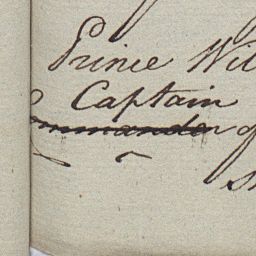 Prince Wil
Captain
Commander of